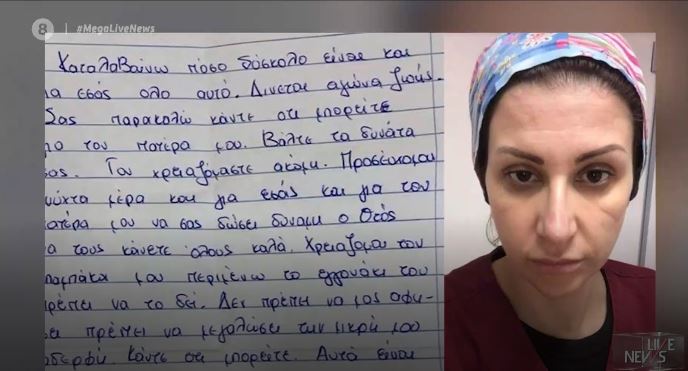 8 #MegaLiveNews
Καταλαβαίνω πόσο δύσκολο είναι και
ια εσάς όλο αυτό. Δίνεται αγώνα ζωής.
Σας παρακαλώ κάντε ότι μπορείτε
ια τον πατέρα μου. Βάλτε τα δυνατά
σας. Τον χρειαζόμαστε ακόμη. Προσεύχομαι
νύχτα μέρα και για εσάς και για τον
ατέρα μου να σας δώσει δύναμη ο Θεός
α τους κάνετε όλους καλά. Χρειάζομαι τον
μπαμπάκα μου περιμένω το εγγονάκι του
ρέπει να το δει. Δεν πρέπει να μας αφή-
ει πρέπει να μεγαλώσει την μικρή μου
δερφή. Κάντε ότι μπορείτε. Αυτό είναι
LIVE
NEWS